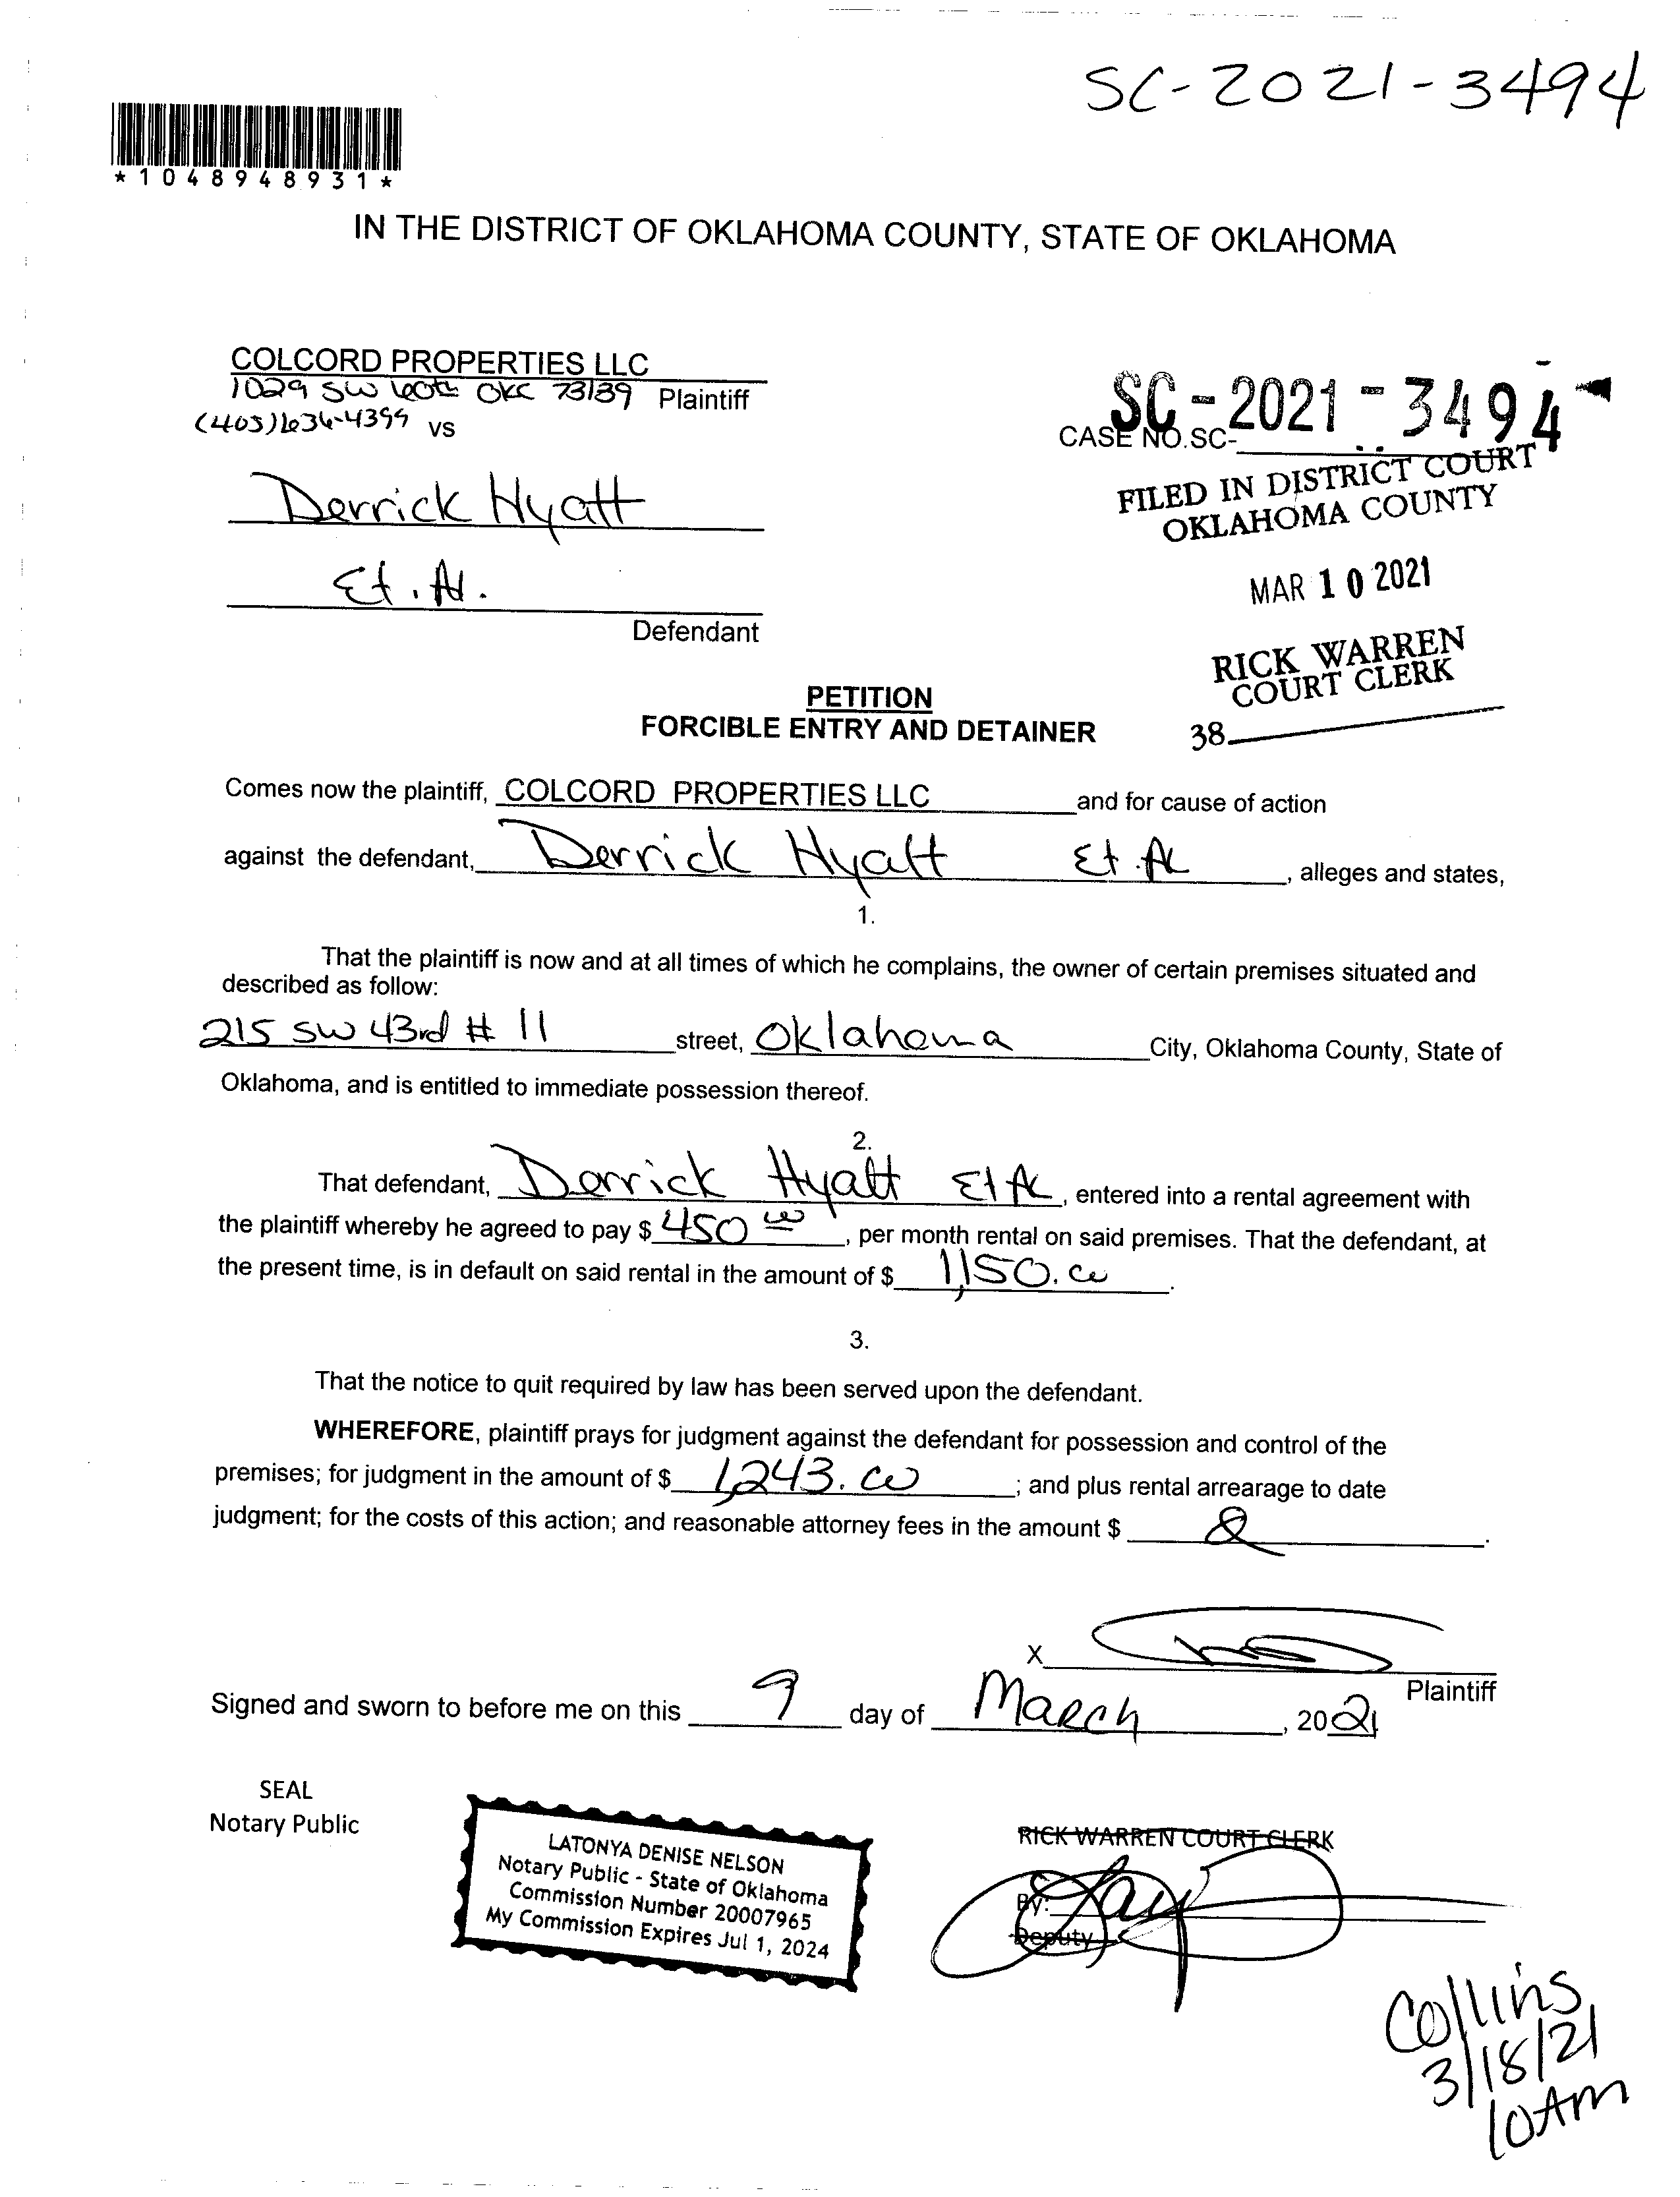 SC-2021-3494
*1048948931*
IN THE DISTRICT OF OKLAHOMA COUNTY, STATE OF OKLAHOMA
COLCORD PROPERTIES LLC
1029 SW 60th OKC 73139 Plaintiff
(405)636-4399 vs
SC-2021-3494
CASE NO.SC-
FILED IN DISTRICT COURT
OKLAHOMA COUNTY
Derrick Hyatt
Et. Al.
MAR 10 2021
Defendant
RICK WARREN
COURT CLERK
38
PETITION
FORCIBLE ENTRY AND DETAINER
Comes now the plaintiff, COLCORD PROPERTIES LLC and for cause of action
against the defendant, Derrick Hyatt Et. Al, alleges and states,
1.
That the plaintiff is now and at all times of which he complains, the owner of certain premises situated and
described as follow:
215 SW 43rd # 11 street, Oklahoma City, Oklahoma County, State of
Oklahoma, and is entitled to immediate possession thereof.
2.
That defendant, Derrick Hyatt Et Al, entered into a rental agreement with
the plaintiff whereby he agreed to pay $ 450 00, per month rental on said premises. That the defendant, at
the present time, is in default on said rental in the amount of $ 1,150.00.
3.
That the notice to quit required by law has been served upon the defendant.
WHEREFORE, plaintiff prays for judgment against the defendant for possession and control of the
premises; for judgment in the amount of $ 1,243.00; and plus rental arrearage to date
judgment; for the costs of this action; and reasonable attorney fees in the amount $
X
Plaintiff
Signed and sworn to before me on this 9 day of March, 2021
SEAL
Notary Public
LATONYA DENISE NELSON
Notary Public - State of Oklahoma
Commission Number 20007965
My Commission Expires Jul 1, 2024
RICK WARREN COURT CLERK
By:
Deputy
Collins
3/18/21
10AM